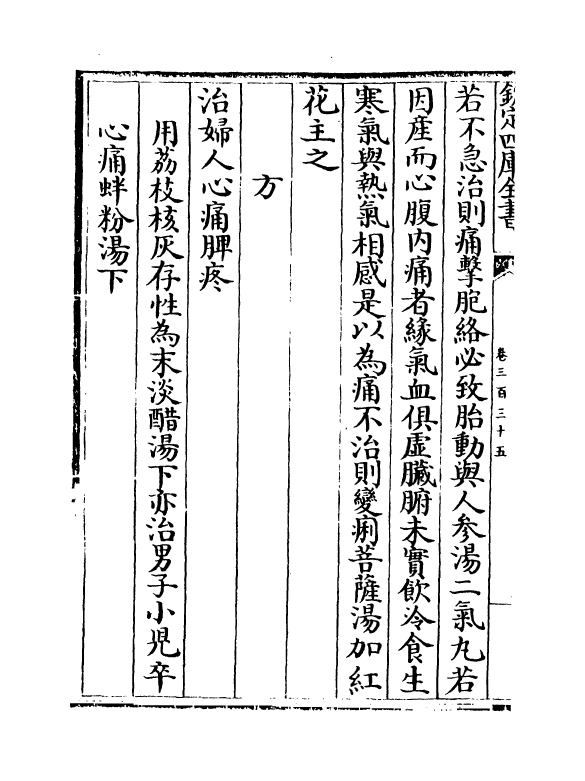 欽定四庫全書
卷三百三十五
若不急治則痛擊胞絡必致胎動與人參湯二氣丸若
因産而心腹内痛者緣氣血俱虛臟腑未實飲冷食生
寒氣與熱氣相感是以為痛不治則變痢菩薩湯加紅
花主之
方
治婦人心痛脾疼
用荔枝核灰存性為末淡醋湯下亦治男子小兒卒
心痛蚌粉湯下